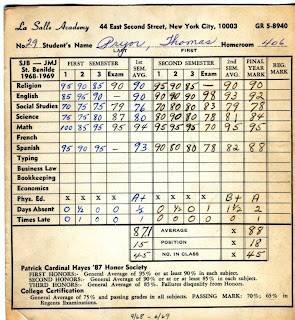 La Salle Academy 44 East Second Street, New York City, 10003 GR 5-8940
No. 29 Student's Name Pryor, Thomas Homeroom 406
LAST FIRST
SJB — JMJ
St. Benilde
1968-1969
FIRST SEMESTER 1st SEM. AVG. SECOND SEMESTER 2nd SEM. AVG. FINAL YEAR MARK REG. MARK
1 2 3 Exam 1 2 3 Exam
Religion 95 90 85 90 90 95 90 85 — 90 90
English 85 95 90 — 90 90 90 90 98 93 92
Social Studies 70 75 75 79 76 70 80 80 83 79 78
Science 75 75 80 87 80 80 90 80 78 81 84
Math 100 85 95 95 94 95 95 95 70 95 95
French
Spanish 95 90 95 — 93 90 80 80 78 82 88
Typing
Business Law
Bookkeeping
Economics
Phys. Ed. x x x x A+ x x x x B+ A
Days Absent 0 ½ 0 ½ 0 ½ 0 1 1½ 2
Times Late 1 0 0 1 0 0 0 0 1
871 AVERAGE x 88
15 POSITION x 18
45 NO. IN CLASS x 45
Patrick Cardinal Hayes '87 Honor Society
FIRST HONORS:- General Average of 95% or at least 90% in each subject.
SECOND HONORS:- General Average of 90% or at least 85% in each subject.
THIRD HONORS:- General Average of 85%. Failures disqualify from Honors.
College Certification
General Average of 75% and passing grades in all subjects. PASSING MARK: 70%; 65% in
Regents Examinations.
9/68 - 6/69